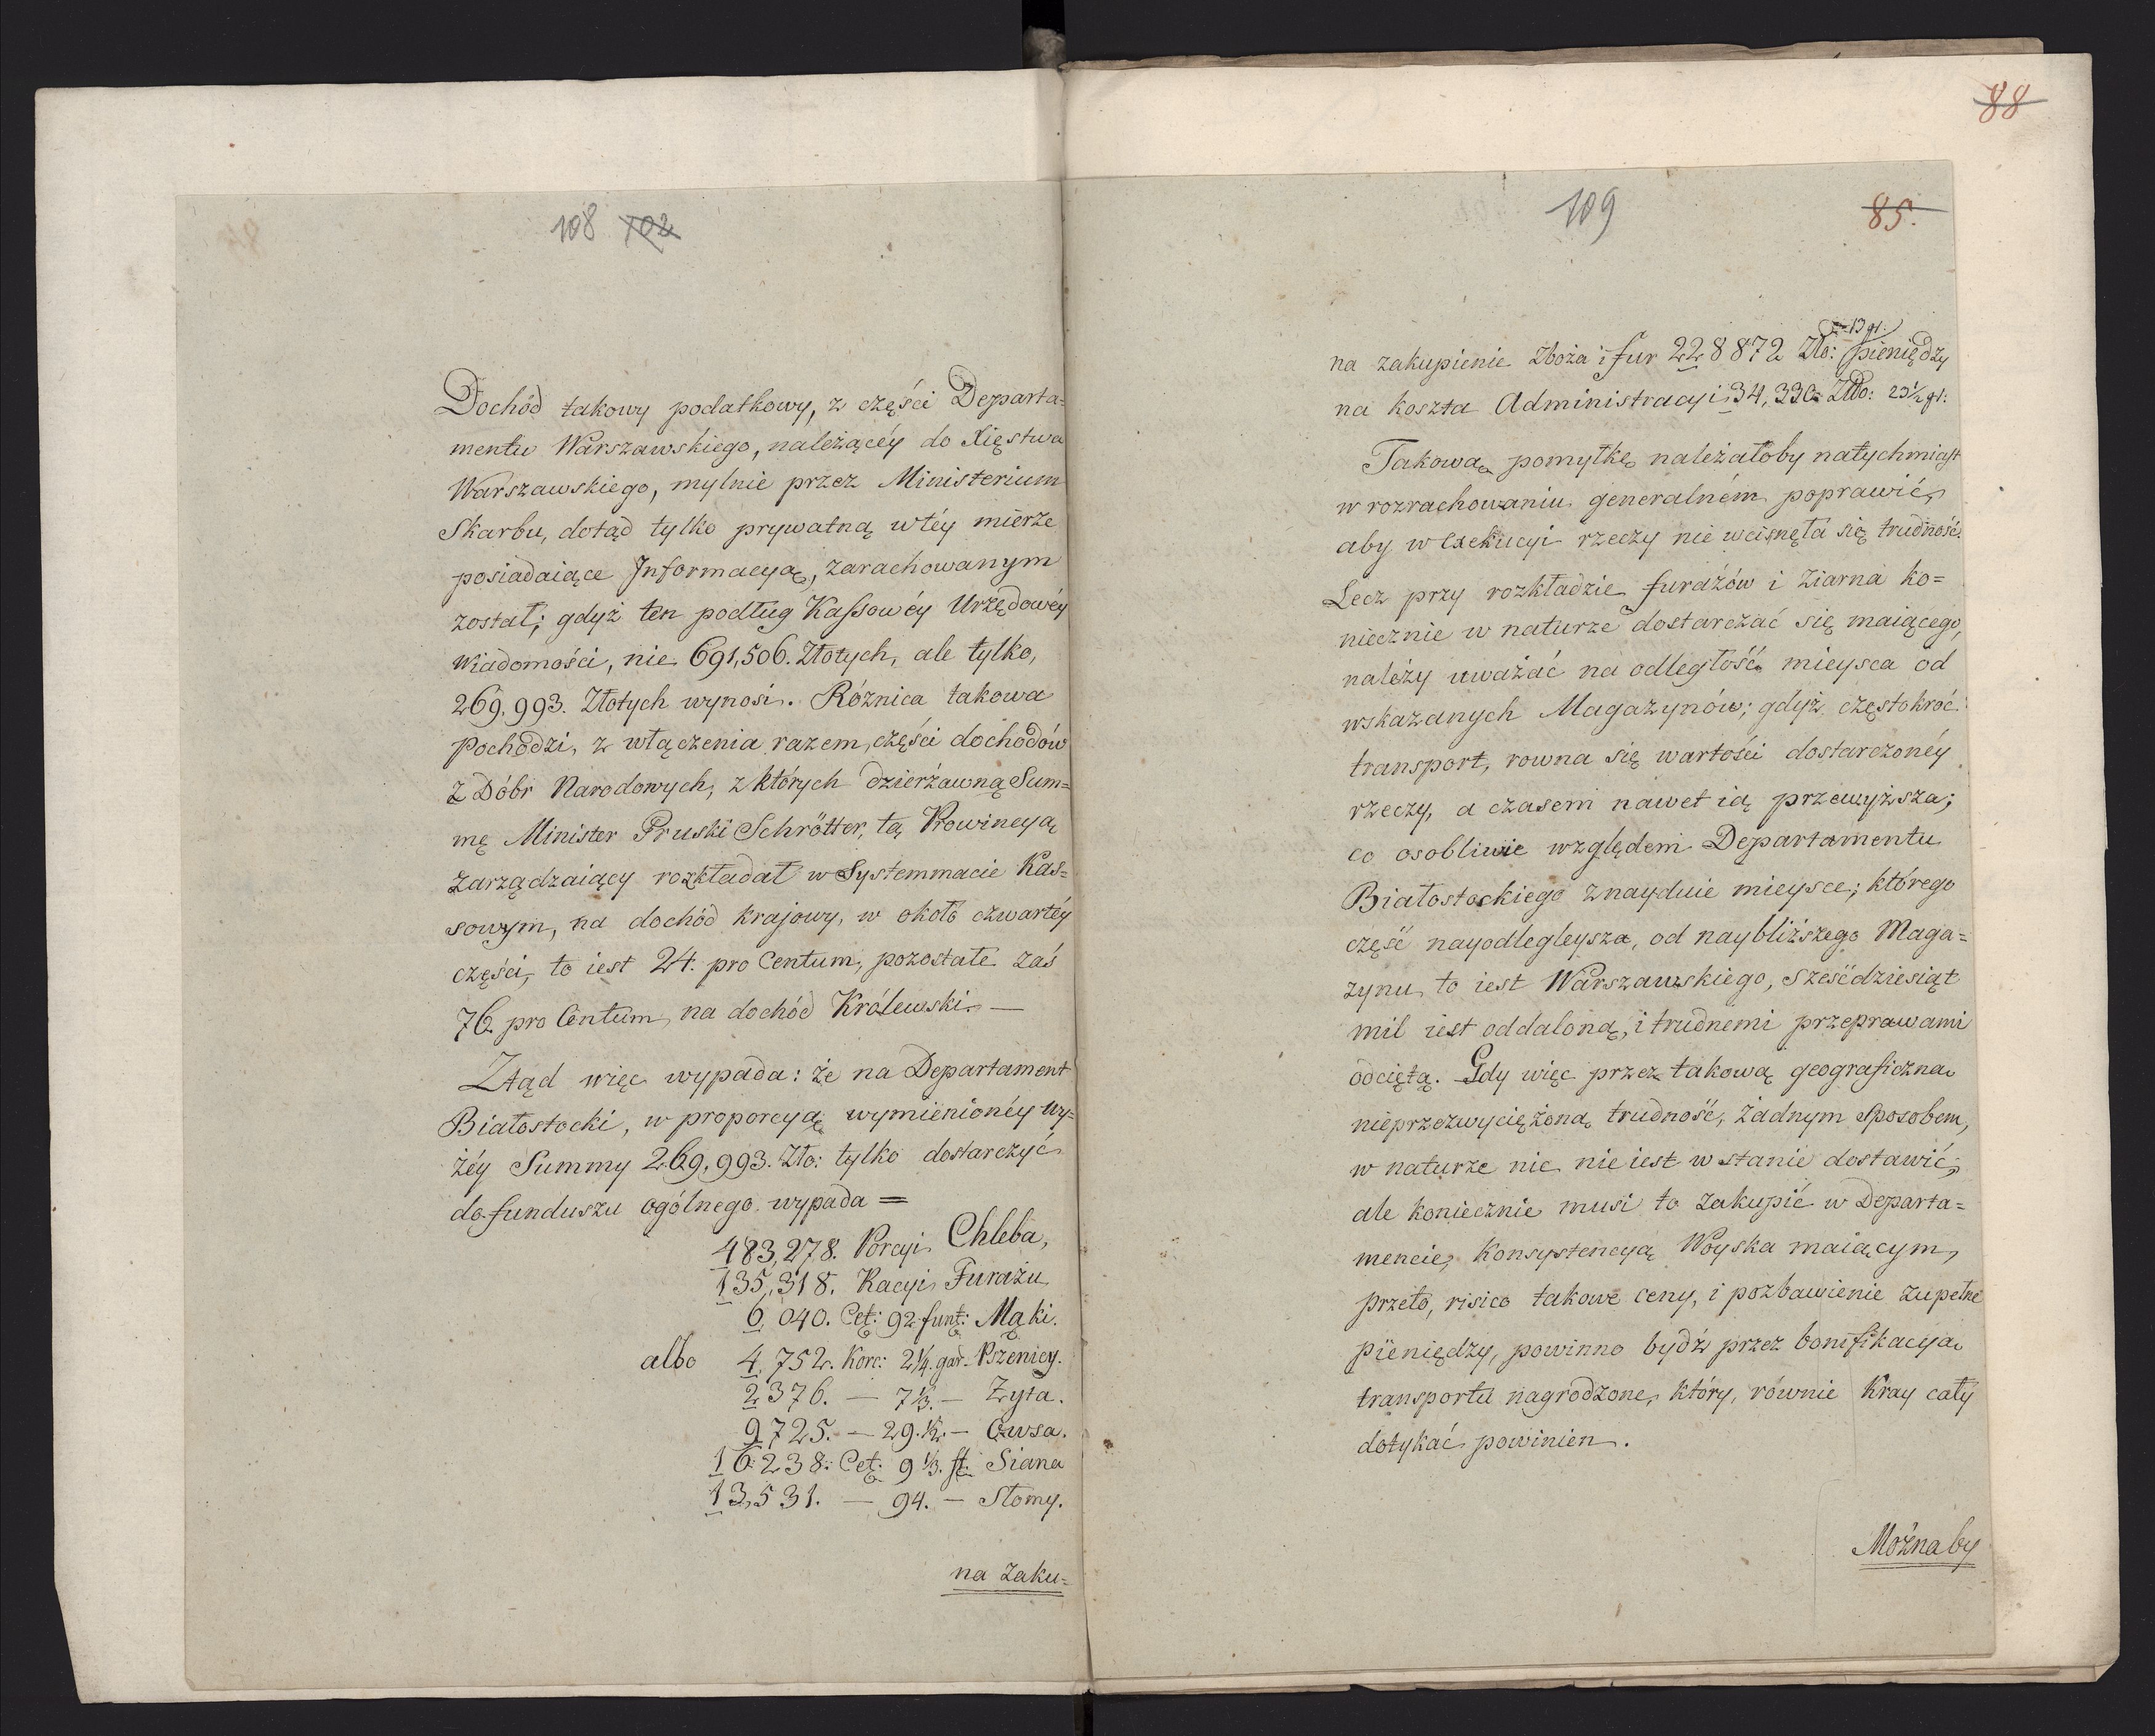 108 102
Dochód takowy podatkowy, z części Departa=
mentu Warszawskiego, należącéy do Xięstwa
Warszawskiego, mylnie przez Ministerium
Skarbu, dotąd tylko prywatną w téy mierze
posiadaiące Informacyą, zarachowanym
został; gdyż ten podług Kassowéy Urzędowéy
wiadomości, nie 691,506. Złotych, ale tylko,
269,993. Złotych wynosi. Różnica takowa
pochodzi, z włączenia razem, części dochodów
z Dóbr Narodowych, z których dzierżawną Sum=
mę Minister Pruski Schrötter, tą Prowincyą
zarządzaiący rozkładał w Systemmacie Kas=
sowym, na dochód krajowy, w około czwartéy
części, to iest 24. pro Centum, pozostałe zaś
76 pro Centum, na dochód Królewski. —
Ztąd więc wypada: że na Departament
Białostocki, w proporcyą wymienionéy wy=
żéy Summy 269,993. Zło: tylko dostarczyć
do funduszu ogólnego wypada =
483,278. Porcyi Chleba,
135,318. Racyi Furażu
6,040. Cet: 92 funt: Mąki.
albo 4,752. Korc: 2¼. gar. Pszenicy.
2376. — 7⅓. — Żyta.
9725. — 29.½. — Owsa.
16:238: Cet: 9⅓. ft: Siana
13,531. — 94. — Słomy.
na zaku=
88
109 85.
na zakupienie Zboża i fur 228872 Zło: 13 gr: pieniędzy
na koszta Administracyi 34,330 Zło: 23½ gr:
Takową pomyłkę należałoby natychmiast
w rozrachowaniu generalném poprawić,
aby w Exekucyi rzeczy nie wcisnęła się trudność.
Lecz przy rozkładzie furażów i Ziarna ko=
niecznie w naturze dostarczać się maiącego,
należy uważać na odległość mieysca od
wskazanych Magazynów; gdyż częstokroć
transport, rowna się wartości dostarczonéy
rzeczy, a czasem nawet ią przewyższa;
co osobliwie względem Departamentu
Białostockiego znayduie mieysce; którego
część nayodlegleysza, od naybliższego Maga=
zynu, to iest Warszawskiego, sześćdziesiąt
mil iest oddaloną, i trudnemi przeprawami
odciętą. Gdy więc przez takową geograficzną
nieprzezwyciężoną trudność, żadnym sposobem,
w naturze nic nie iest w stanie dostawić,
ale koniecznie musi to zakupić w Departa=
mencie, Konsystencyą Woyska maiącym,
przeto, risico takowe ceny, i pozbawienie zupełne
pieniędzy, powinno bydź przez bonifikacyą
transportu nagrodzone, który, równie Kray cały
dotykać powinien.
Możnaby